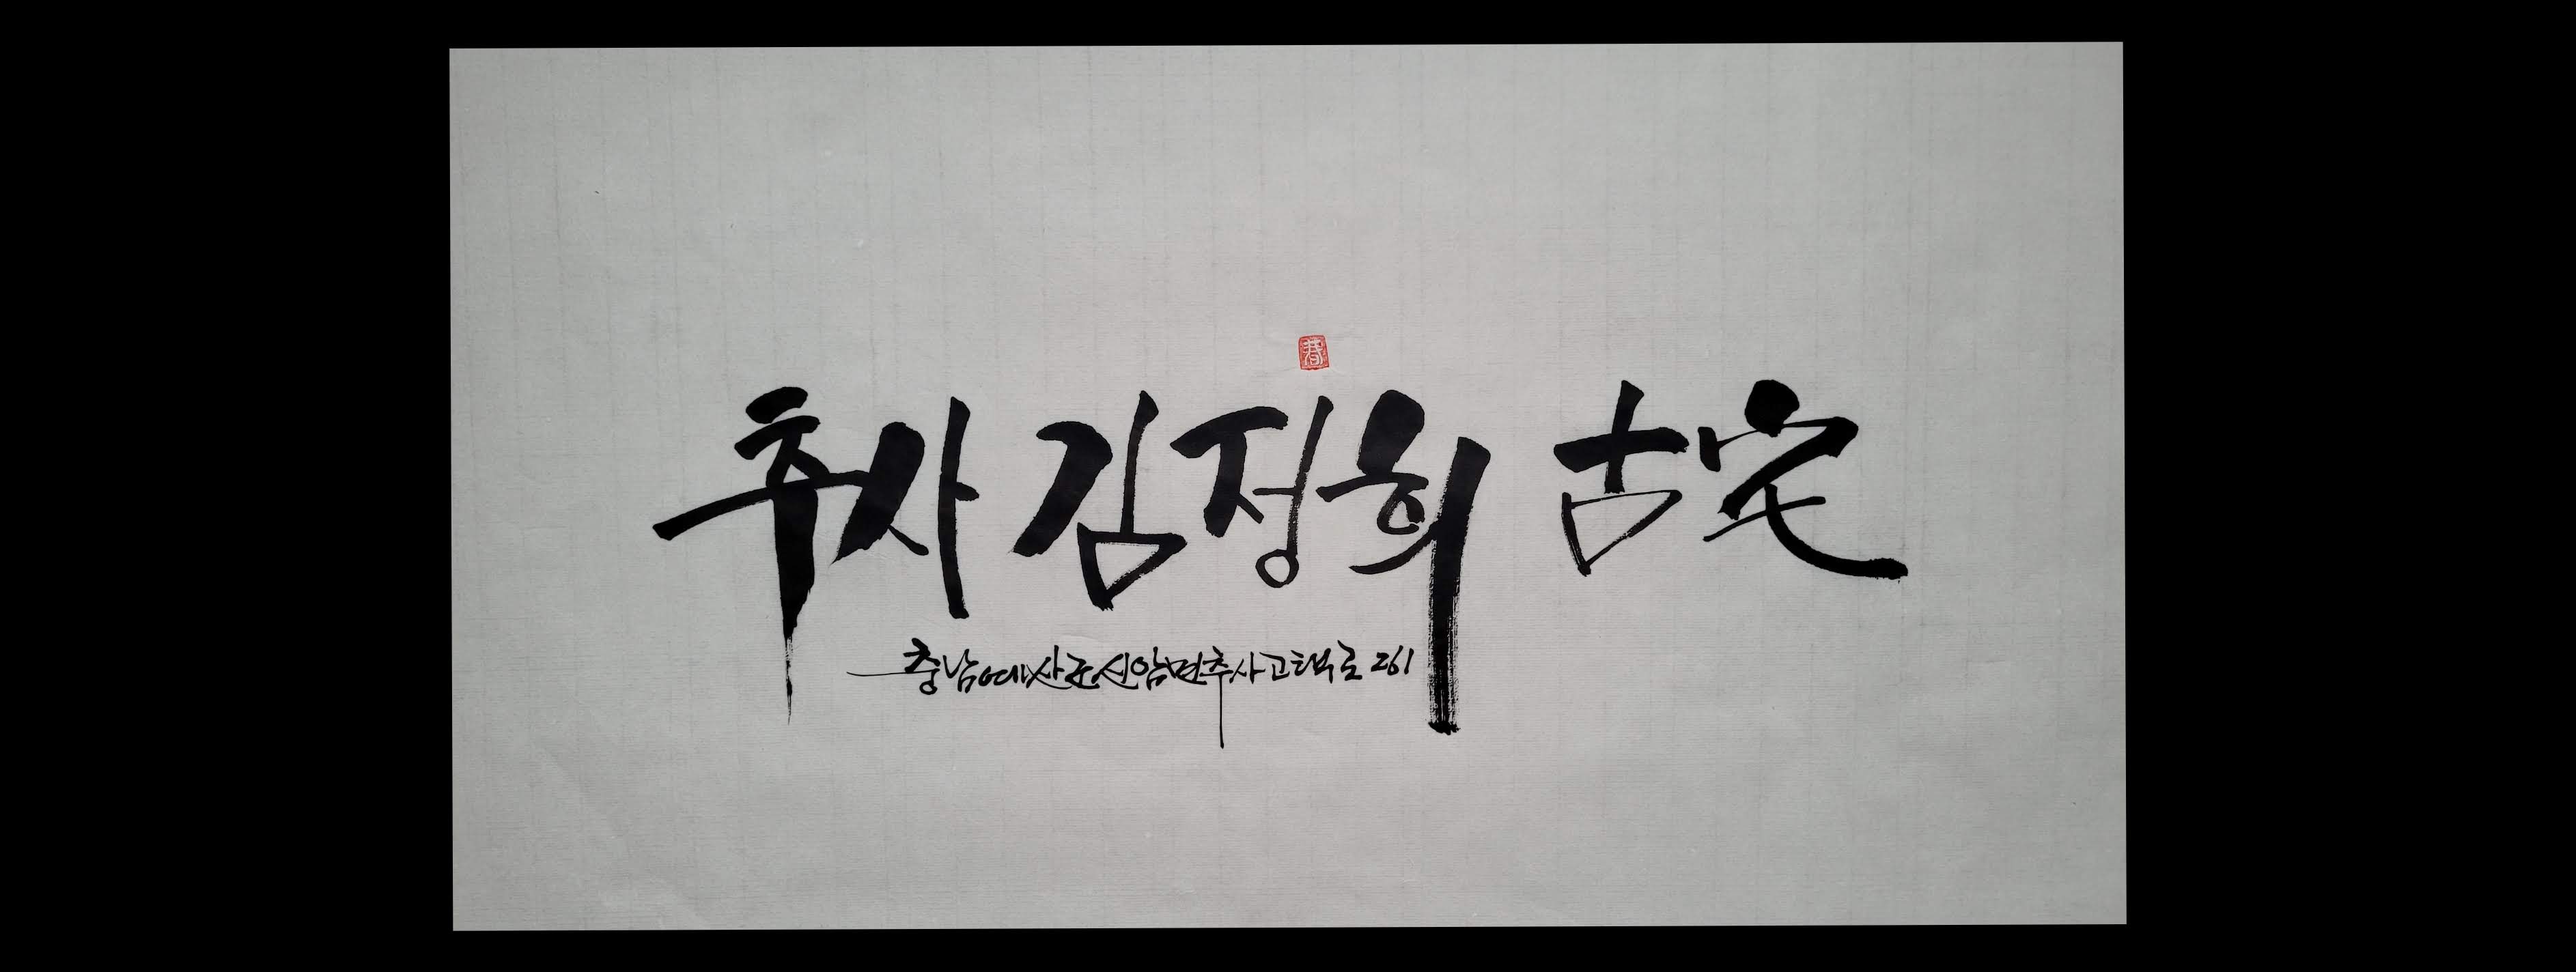 추사 김정희 古宅
충남예산군신암면추사고택로 261